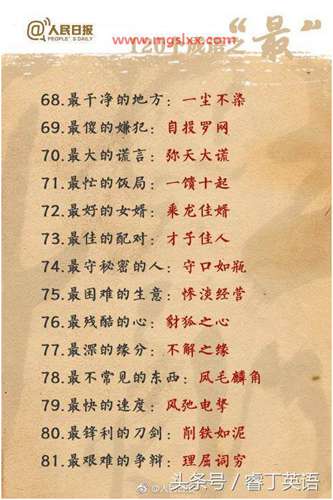 @人民日报
PEOPLE'S DAILY
www.mgslxx.com
120个成语之“最”
68.最干净的地方：一尘不染
69.最傻的嫌犯：自投罗网
70.最大的谎言：弥天大谎
71.最忙的饭局：一馈十起
72.最好的女婿：乘龙佳婿
73.最佳的配对：才子佳人
74.最守秘密的人：守口如瓶
75.最困难的生意：惨淡经营
76.最残酷的心：豺狐之心
77.最深的缘分：不解之缘
78.最不常见的东西：凤毛麟角
79.最快的速度：风弛电掣
80.最锋利的刀剑：削铁如泥
81.最艰难的争辩：理屈词穷
头条号/睿丁英语